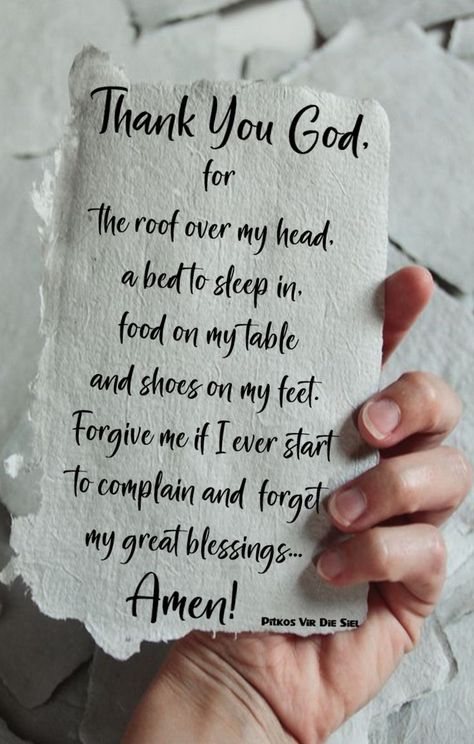 Thank You God,
for
the roof over my head,
a bed to sleep in,
food on my table
and shoes on my feet.
Forgive me if I ever start
to complain and forget
my great blessings...
Amen!
Pitkos Vir Die Siel